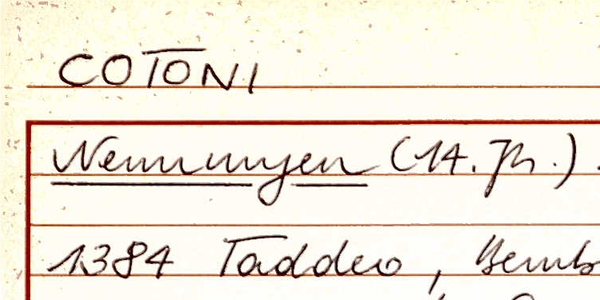 COTONI
Nennungen (14. Jh.)
1384 Taddeo,